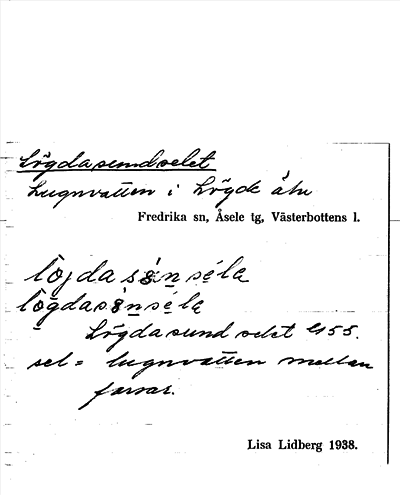 Lögdasundselet
Lugnvatten i Lögde älv
Fredrika sn, Åsele tg, Västerbottens l.
lögdasundselet
Lögdasund selet
sel = lugnvatten mellan
forsar.
Lisa Lidberg 1938.